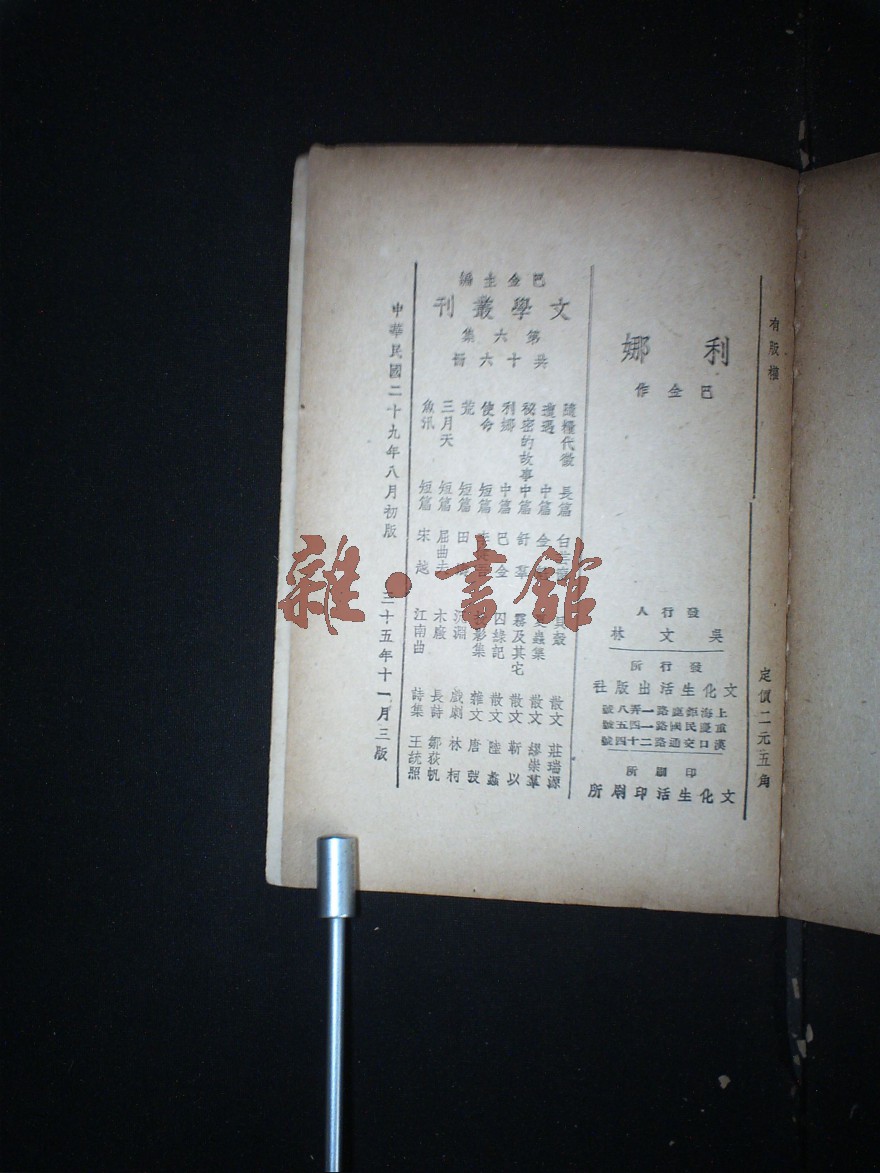 有版權
定價二元五角
利娜
巴金作
發行人
吳文林
發行所
文化生活出版社
上海鉅鹿路一弄八號
重慶民國路一四五號
漢口交通路二十四號
印刷所
文化生活印刷所
巴金主編
文學叢刊
第六集
共十六冊
隨糧代徵 長篇
遭遇 中篇
秘密的故事 中篇 舒羣
利娜 中篇 巴金
使命 短篇
荒 短篇 田
三月天 短篇 屈曲夫
魚汛 短篇 宋越
貝殼 散文 莊瑞源
夏蟲集 散文 繆崇羣
霧及其它 散文 靳以
囚綠記 散文 陸蠡
影集 雜文 唐弢
沉淵 戲劇 林柯
木廠 長詩 鄒荻帆
江南曲 詩集 王統照
中華民國二十九年八月初版
三十五年十一月三版
雜·書館